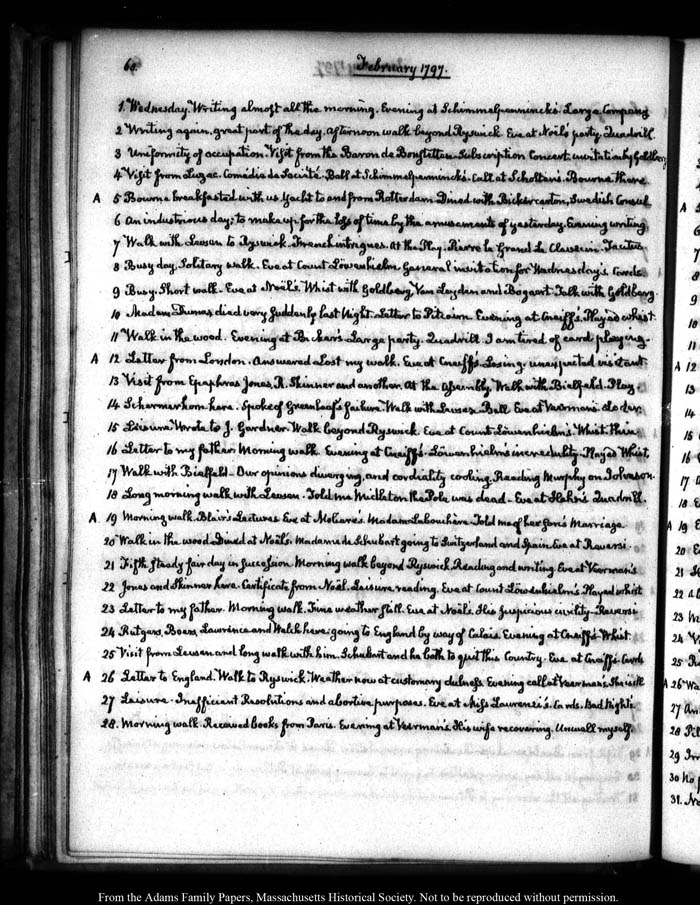 60.
February 1797.
1. Wednesday. Writing almost all the morning. Evening at Schimmelpennincks. Large Company
2 Writing again, great part of the day. Afternoon walk beyond Ryswick Eve at Noëls party. Quadrill.
3 Uniformity of occupation. Visit from the Baron de Bonstetten. Subscription Concert. invitation by Goldberg
4 Visit from Luzac. Comédie de Société. Ball at Schimmelpennincks. Call at Scholten's. Bourne there.
A 5 Bourne breakfasted with us Yacht to and from Rotterdam Dined with Bicker Swedish Consul
6 An industrious day; to make up for the loss of time by the amusements of yesterday. Evening writing
7 Walk with to Ryswick. French intrigues. At the Play. Pierre le Grand La Tacitus.
8 Busy day. Solitary walk. Eve at Count Löwenhielm. General invitation for Wednesday's. Cards.
9 Busy. Short walk. Eve at Noël's. Whist with Goldberg, Van Leyden and Bogaert. Talk with Goldberg.
10 Madam Dumas died very suddenly last night. Letter to Pitcairn. Evening at Played whist.
11 Walk in the wood. Evening at Large party. Quadrill. I am tired of card playing.
A 12 Letter from London. Answered Lost my walk. Eve at Losing. unexpected visitant.
13 Visit from Epaphras Jones, R. Skinner and another. At the Assembly. Walk with Bielfeld. Play.
14 Schermerhorn here. Spoke of Greenleaf's failure. Walk with Ball. Eve at Veerman's.
15 Leisure. Wrote to J. Gardner. Walk beyond Ryswick. Eve at Count Löwenhielm's. Whist there
16 Letter to my father. Morning walk. Evening at Löwenhielm's incredulity. Played Whist.
17 Walk with Bielfeld. Our opinions diverging, and cordiality cooling. Reading Murphy on Johnson.
18 Long morning walk with Told me Middleton the Pole was dead. Eve at Quadrill.
A. 19 Morning walk. Blair's Lectures Eve at Moliere's. Madam Labouchere. Told me of her Son's Marriage
20 Walk in the wood. Dined at Noël's. Madame de Schubart going to Switzerland and Spain. Eve at Reversi.
21 Fifth steady fair day in succession. Morning walk beyond Ryswick Reading and writing. Eve at Veerman's.
22 Jones and Skinner here. Certificate from Noël. Leisure reading. Eve at Count Löwenhielm's. Played whist
23 Letter to my father. Morning walk. Fine weather still. Eve at Noël's. His suspicious civility. Reversi
24 Rutgers, Boers, Lawrence and here. going to England by way of Calais. Evening at Whist.
25 Visit from and long walk with him. Schubart and he both to quit this Country. Eve at Cards
A 26 Letter to England. Walk to Ryswick. Weather now at customary dulness. Evening call at Veerman's. She is ill
27 Leisure. Inefficient Resolutions and abortive purposes. Eve at Miss Laurenzi's. Cards. Bad Night.
28. Morning walk. Received books from Paris. Evening at Veerman's. His wife recovering. Unwell myself.
From the Adams Family Papers, Massachusetts Historical Society. Not to be reproduced without permission.